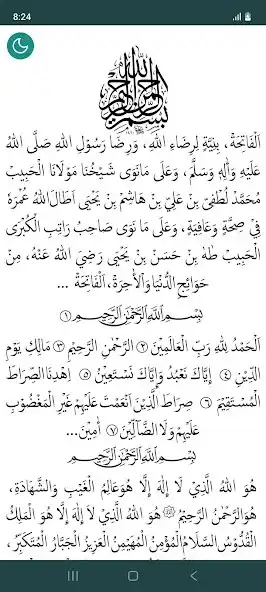 8:24
بِسْمِ اللهِ الرَّحْمٰنِ الرَّحِيْمِ
اَلْفَاتِحَةْ، بِنِيَّةٍ لِرِضَاءِ اللهِ، وَرِضَا رَسُوْلِ اللهِ صَلَّى اللهُ
عَلَيْهِ وَاٰلِهِ وَسَلَّمَ، وَعَلَى مَانَوَى شَيْخُنَا مَوْلَانَا الْحَبِيبْ
مُحَمَّدْ لُطْفِيْ بِنْ عَلِيْ بِنْ هَاشِمْ بِنْ يَحْيَى اَطَالَ اللهُ عُمْرَهُ
فِيْ صِحَّةٍ وَعَافِيَةٍ، وَعَلَى مَا نَوَى صَاحِبُ رَاتِبِ الْكُبْرَى
الْحَبِيبْ طٰهٰ بِنْ حَسَنْ بِنْ يَحْيَى رَضِيَ اللهُ عَنْهُ، مِنْ
حَوَائِجِ الدُّنْيَا وَاْلأٰخِرَةْ، اَلْفَاتِحَةْ ...
بِسْمِ اللهِ الرَّحْمٰنِ الرَّحِيْمِ ①
اَلْحَمْدُ لِلّٰهِ رَبِّ الْعَالَمِيْنَ ② الرَّحْمٰنِ الرَّحِيْمِ ③ مَالِكِ يَوْمِ
الدِّيْنِ ④ إِيَّاكَ نَعْبُدُ وَإِيَّاكَ نَسْتَعِيْنُ ⑤ اِهْدِنَا الصِّرَاطَ
الْمُسْتَقِيْمَ ⑥ صِرَاطَ الَّذِيْنَ اَنْعَمْتَ عَلَيْهِمْ غَيْرِ الْمَغْضُوْبِ
عَلَيْهِمْ وَلَا الضَّآلِّيْنَ ⑦ اٰمِيْنَ...
بِسْمِ اللهِ الرَّحْمٰنِ الرَّحِيْمِ
هُوَ اللهُ الَّذِيْ لَا إِلٰهَ إِلَّا هُوَ عَالِمُ الْغَيْبِ وَالشَّهَادَةِ،
هُوَ الرَّحْمٰنُ الرَّحِيْمُ هُوَ اللهُ الَّذِيْ لَا إِلٰهَ إِلَّا هُوَ الْمَلِكُ
الْقُدُّوْسُ السَّلَامُ الْمُؤْمِنُ الْمُهَيْمِنُ الْعَزِيْزُ الْجَبَّارُ الْمُتَكَبِّرُ،